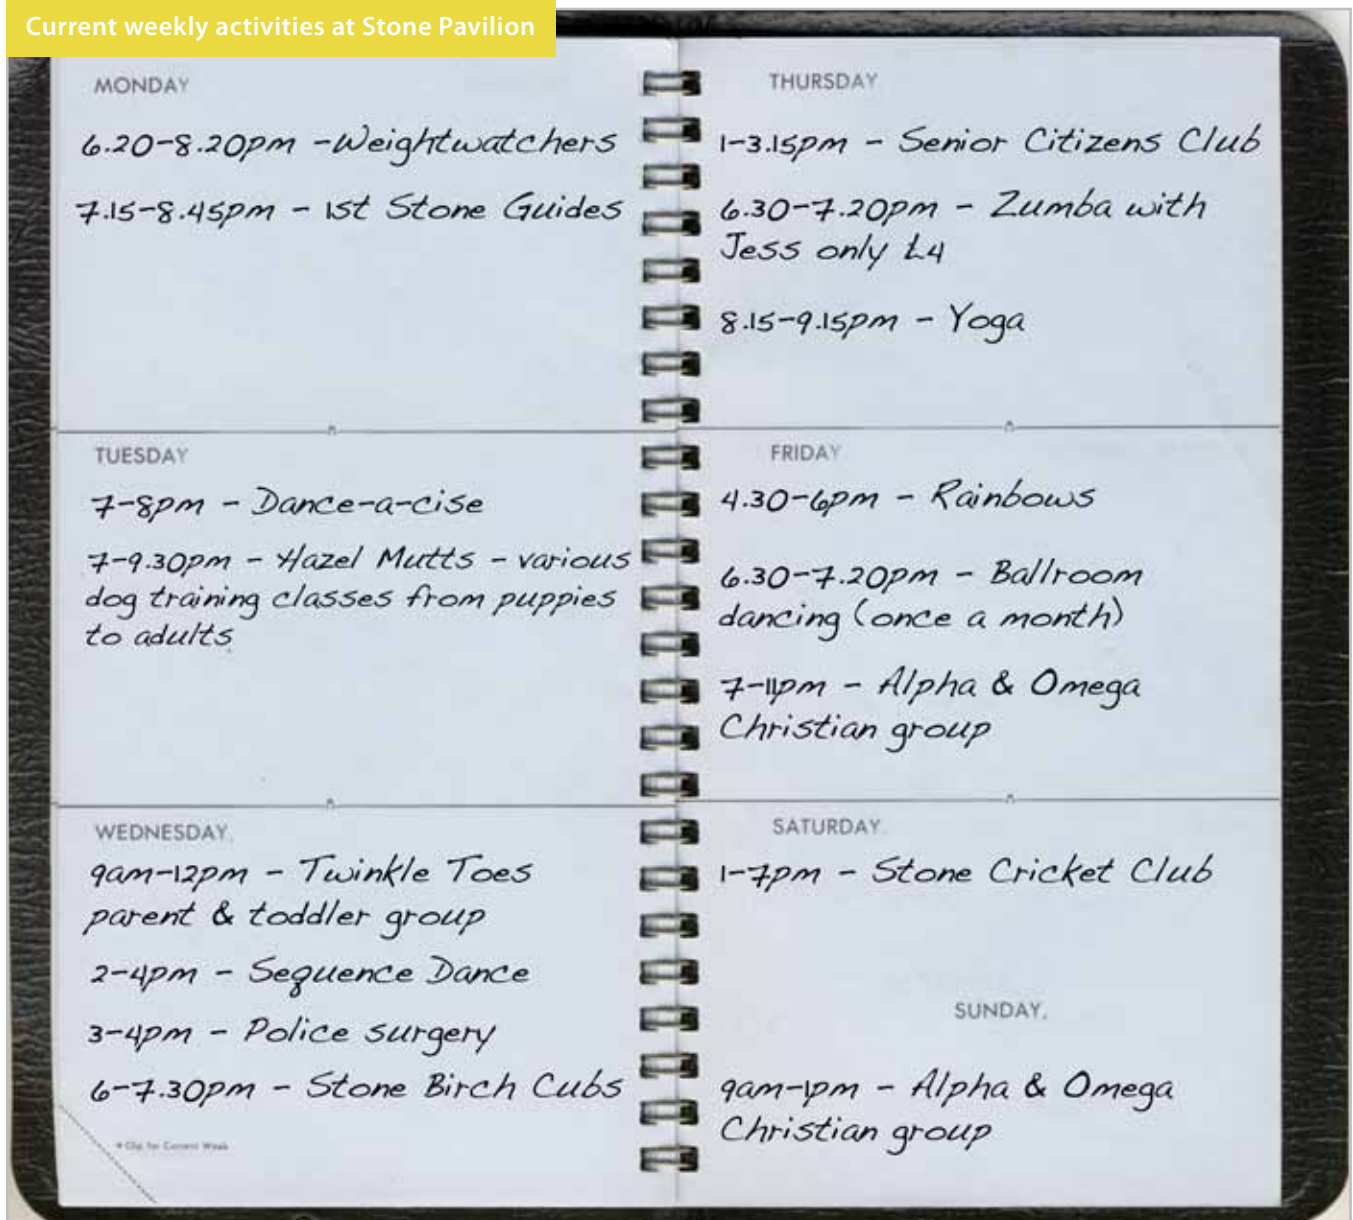 Current weekly activities at Stone Pavilion
MONDAY
6.20-8.20pm -Weightwatchers
7.15-8.45pm - 1st Stone Guides
TUESDAY
7-8pm - Dance-a-cise
7-9.30pm - Hazel Mutts - various
dog training classes from puppies
to adults
WEDNESDAY.
9am-12pm - Twinkle Toes
parent & toddler group
2-4pm - Sequence Dance
3-4pm - Police surgery
6-7.30pm - Stone Birch Cubs
Clip for Current Week
THURSDAY
1-3.15pm - Senior Citizens Club
6.30-7.20pm - Zumba with
Jess only £4
8.15-9.15pm - Yoga
FRIDAY
4.30-6pm - Rainbows
6.30-7.20pm - Ballroom
dancing (once a month)
7-11pm - Alpha & Omega
Christian group
SATURDAY.
1-7pm - Stone Cricket Club
SUNDAY.
9am-1pm - Alpha & Omega
Christian group